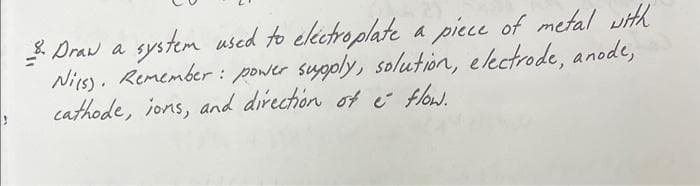 8. Draw a system used to electroplate a piece of metal with
Ni(s). Remember: power supply, solution, electrode, anode,
cathode, ions, and direction of e⁻ flow.